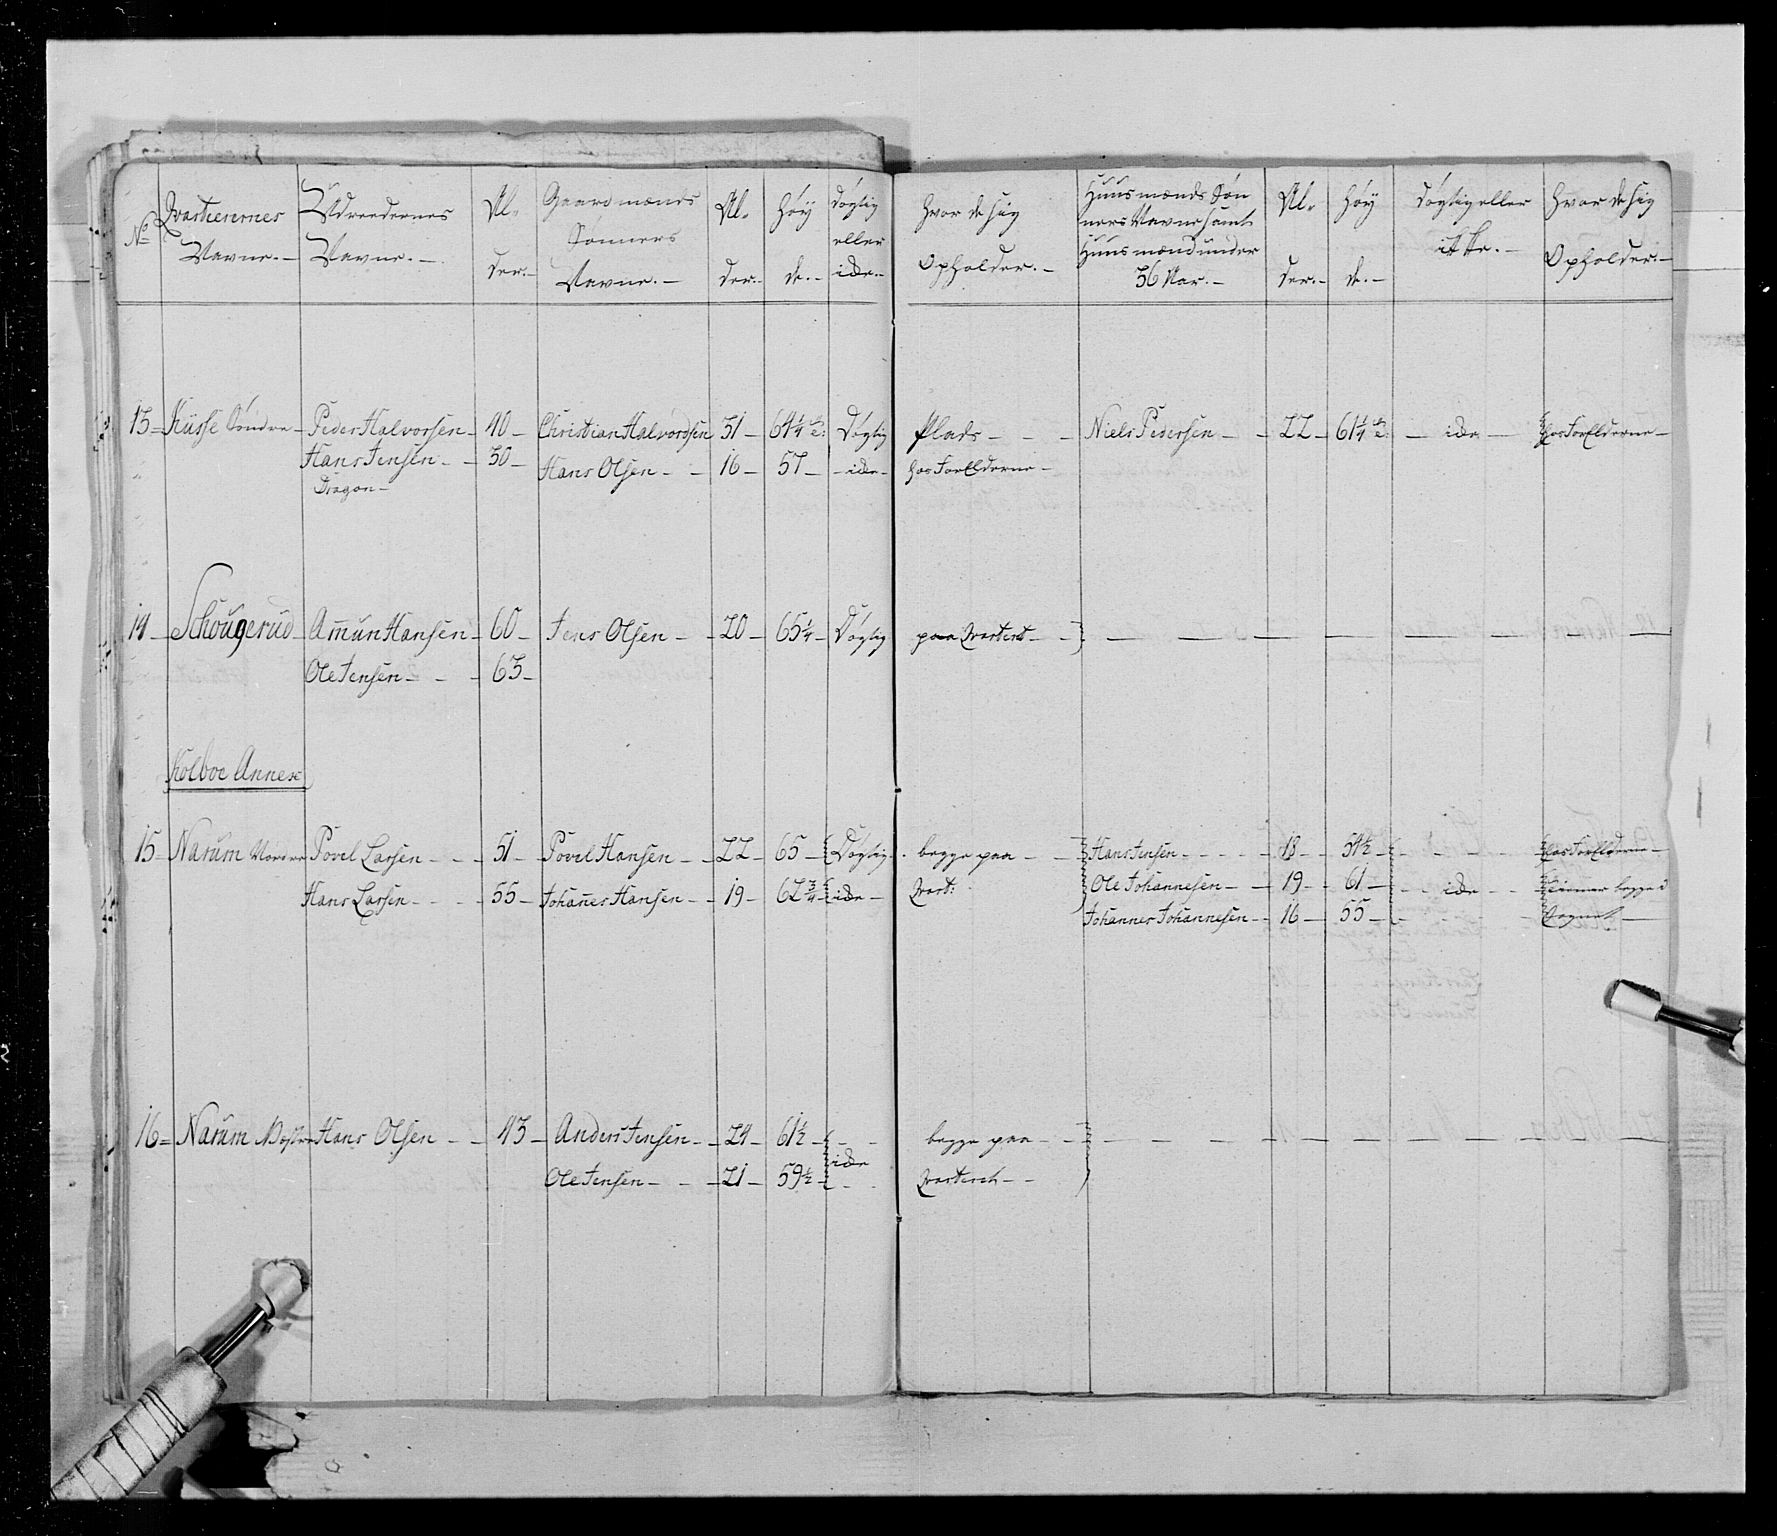 No Qvarterernes Navne.— Udreedernes Navne.— Al-der.— Gaardmænds Sønners Navne.— Al-der.— Høy-de.— døgtig eller icke.— Hvor de sig Opholder.— Huusmænds Sønners Navne samt Huusmænd under 36 Aar.— Al-der.— Høy-de.— døgtig eller ikke.— Hvor de sig Opholder.—
13= Küsse Søndre — Peder Halvorsen — 40 — Christian Halvordsen 31 — 64¼ Døgtig Plads — — — Niels Pedersen — — 22 — 61¼ — icke — hos Forelderne —
Hans Jensen — — 30 — Hans Olsen — — 16 — 57 — icke — hos Forelderne —
Dragon —
14 — Schougerud — Amun Hansen — 60 — Jens Olsen — — 20 — 65¼ — Døgtig paa Qvarteret — —
Ole Jensen — — — 63 —
Kolboe Annex
15 — Narum Nordre Povel Larsen — — — 51 — Povel Hansen — — 22 — 65 — Døgtig — begge paa — — Hans Jensen — — — — 18 — 54½ — — — hos Forelderne —
Hans Larsen — — — 55 — Johanes Hansen — — 19 — 62¾ — icke — Qvart: Ole Johannesen — — 19 — 61 — — — icke — — tienner begge i
Johannes Johannesen — 16 — 55 — — — Sognet —
16= Narum Hans Olsen — — 43 — Anders Jensen — — 24 — 61½ — — — begge paa — —
Ole Jensen — — — 21 — 59½ — icke Qvarteret — —